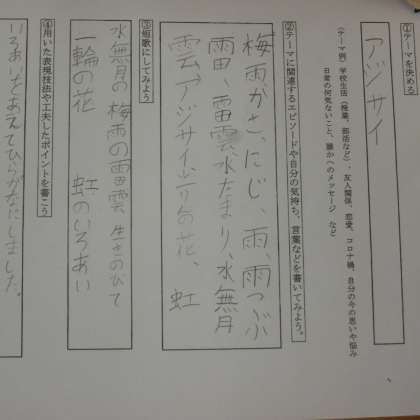 ①テーマを決める
アジサイ
(テーマ例) 学校生活(授業、部活など)、友人関係、恋愛、コロナ禍、自分の今の思いや悩み
日常の何気ないこと、誰かへのメッセージ など
②テーマに関連するエピソードや自分の気持ち、言葉などを書いてみよう。
梅雨、かさ、にじ、雨、雨つぶ
雷、雷雲、水たまり、水無月
雲、アジサイ、一りの花、虹
③短歌にしてみよう
水無月の 梅雨の雷雲 生きのびて
一輪の花 虹のいろあい
④用いた表現技法や工夫したポイントを書こう
いろあいをあえてひらがなにしました。